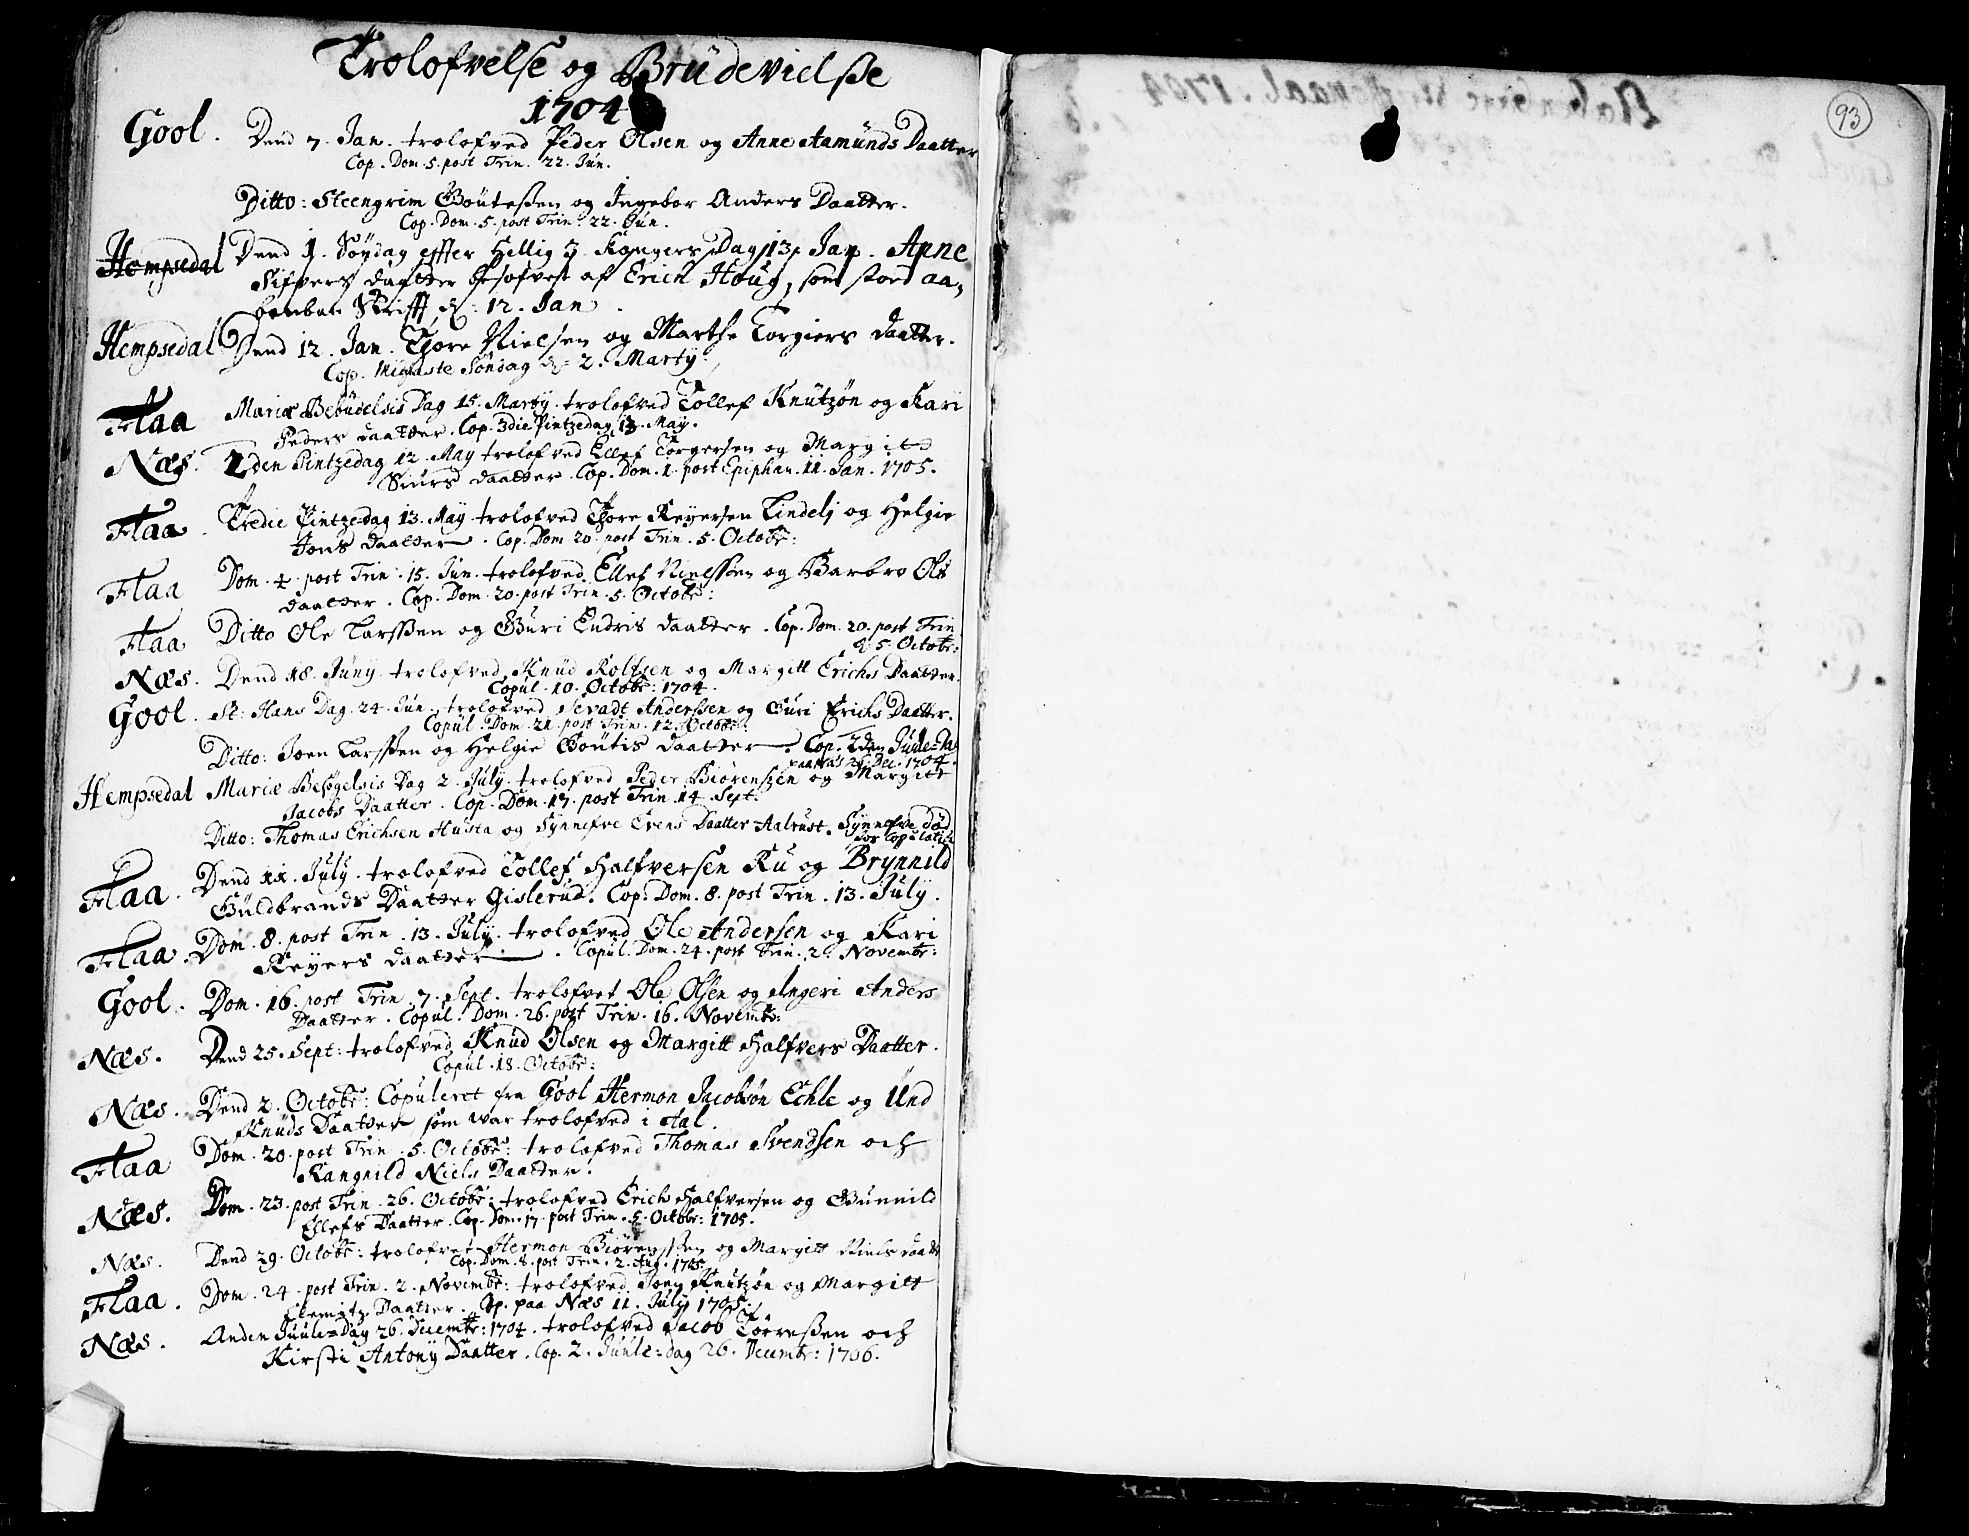 Trolofvelse og Brudevielsse
1704
Gool. Dend 7. Jan. trolofved Peder Olsen og Anne Aamunds Daatter
Cop. Dom. 5. post Trin. 22. Jun.
Ditto: Steengrim Goutessen og Ingebor Anders Daatter.
Cop. Dom. 5. post Trin. 22. Jun.
Hempsedal Dend 1. Søndag effter Hellig 3 Kongers Dag, 13. Jan. Anne
Sifvers daatter besofvest af Erich Houg, som stod aa,
benbare Skrifft, d. 12. Jan.
Hempsedal Dend 12. Jan. Thore Nielsen og Marthe Torgiers daatter.
Cop. Midfaste Søndag d. 2. Martÿ.
Flaa Mariæ Bebudelsis Dag 15. Martÿ. trolofved Tollef Knutzøn og Kari
Peders daatter. Cop. 3die Pintzedag 13. Maÿ.
Næs. 2den Pintzedag 12. Maÿ trolofved Ellef Torgersen og Margitt
Siurs daatter. Cop. Dom. 1. post Epiphan. 11. Jan. 1705.
Flaa. Tredie Pintzedag 13. Maÿ trolofved Thore Reÿersen Lindelj og Helgie
Jons daatter. Cop. Dom 20. post Trin. 5. Octobr:
Flaa Dom. 4. post Trin. 15. Jun. trolofved Ellef Nielssen og Barbro Ols
daatter. Cop. Dom. 20. post Trin. 5. Octobr:
Flaa Ditto Ole Larssen og Guri Endris daatter. Cop. Dom. 20. post Trin
d. 5. Octobr:
Næs. Dend 18. Junÿ trolofved Knud Rolfsen og Margitt Erichs Daatter.
Copul. 10. Octobr: 1704.
Gool. St: Hans Dag. 24. Jun. trolofved Sevadt Anderssen og Guri Erichs Daatter.
Copul. Dom. 21. post Trin. 12. Octobr:
Ditto: Joen Larssen og Helgie Goutis daatter. Cop. 2den Juule=Dag
paa Aas 26. Dec. 1704.
Hempsedal Mariæ Besøgelsis Dag 2. Julÿ. trolofved Peder Biørenssen og Margitt
Jacobs Daatter. Cop. Dom. 17. post Trin 14. Sept.
Ditto: Thomas Erichsen Husta og Sÿnnefve Evens Daatter Aalrust. Sÿnnefve død
før Copulation
Flaa. Dend 11. Julÿ. trolofved Tollef Halfversen Ru og Brynnild
Guldbrands Daatter Gislerud. Cop: Dom. 8. post Trin. 13. Julÿ.
Flaa. Dom. 8. post Trin. 13. Julÿ. trolofved Ole Andersen og Kari
Reÿers daatter. Copul. Dom. 24. post Trin. 2. Novembr:
Gool. Dom. 16. post Trin. 7. Sept. trolofvet Ole Olsen og Angeri Anders
Daatter. Copul. Dom. 26. post Trin. 16. Novembr:
Næs. Dend 25. Sept: trolofved Knud Olsen og Margitt Halfvers Daatter.
Copul. 18. Octobr:
Næs. Dend 2. Octobr: Copuleret fra Gool Hermon Jacobsøn Echle og Und
Knuds Daatter som war trolofved i Aal.
Flaa Dom. 20. post Trin. 5. Octobr: trolofved Thomas Svendsen och
Rangnild Niels Daatter.
Næs. Dom. 23. post Trin. 26. Octobr: trolofved Erich Halfversen og Gunnild
Ellefs Daatter. Cop. Dom. 17. post Trin. 5. Octobr: 1705.
Næs. Dend 29. Octobr: trolofvet Hermon Biørenssen og Margitt Niels daatt
Cop. Dom. 8. post Trin. 2. Aug. 1705.
Flaa. Dom. 24. post Trin. 2. Novembr: trolofved Joen Knutzøn og Margitt
Clemitz Daatter. Cop. paa Næs 11. Julÿ 1705.
Næs. Anden Juule=Dag 26. Decembr: 1704. trolofved Jacob Tørressen och
Kirsti Antonÿ Daatter. Cop. 2. Juule=dag 26. Decembr: 1706.
93